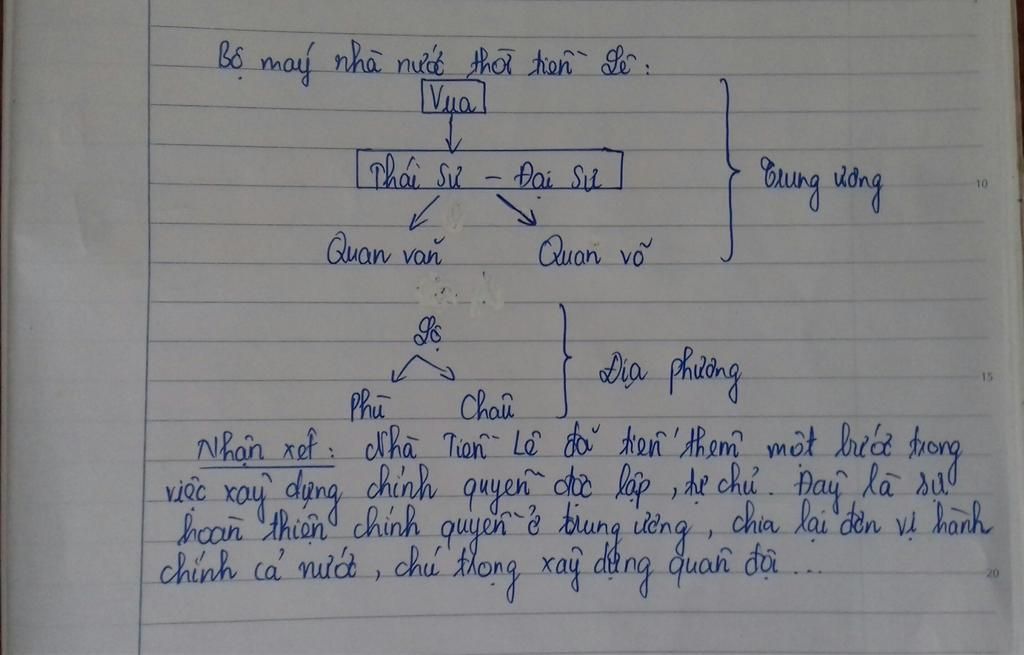 Bộ máy nhà nước thời tiền Lê:
Vua
Thái sư - Đại sư
Trung ương
Quan văn Quan võ
Lộ
Địa phương
Phủ Châu
Nhận xét: Nhà Tiền Lê đã tiến thêm một bước trong
việc xây dựng chính quyền độc lập, tự chủ. Đây là sự
hoàn thiện chính quyền ở trung ương, chia lại đơn vị hành
chính cả nước, chú trọng xây dựng quân đội ...
10
15
20